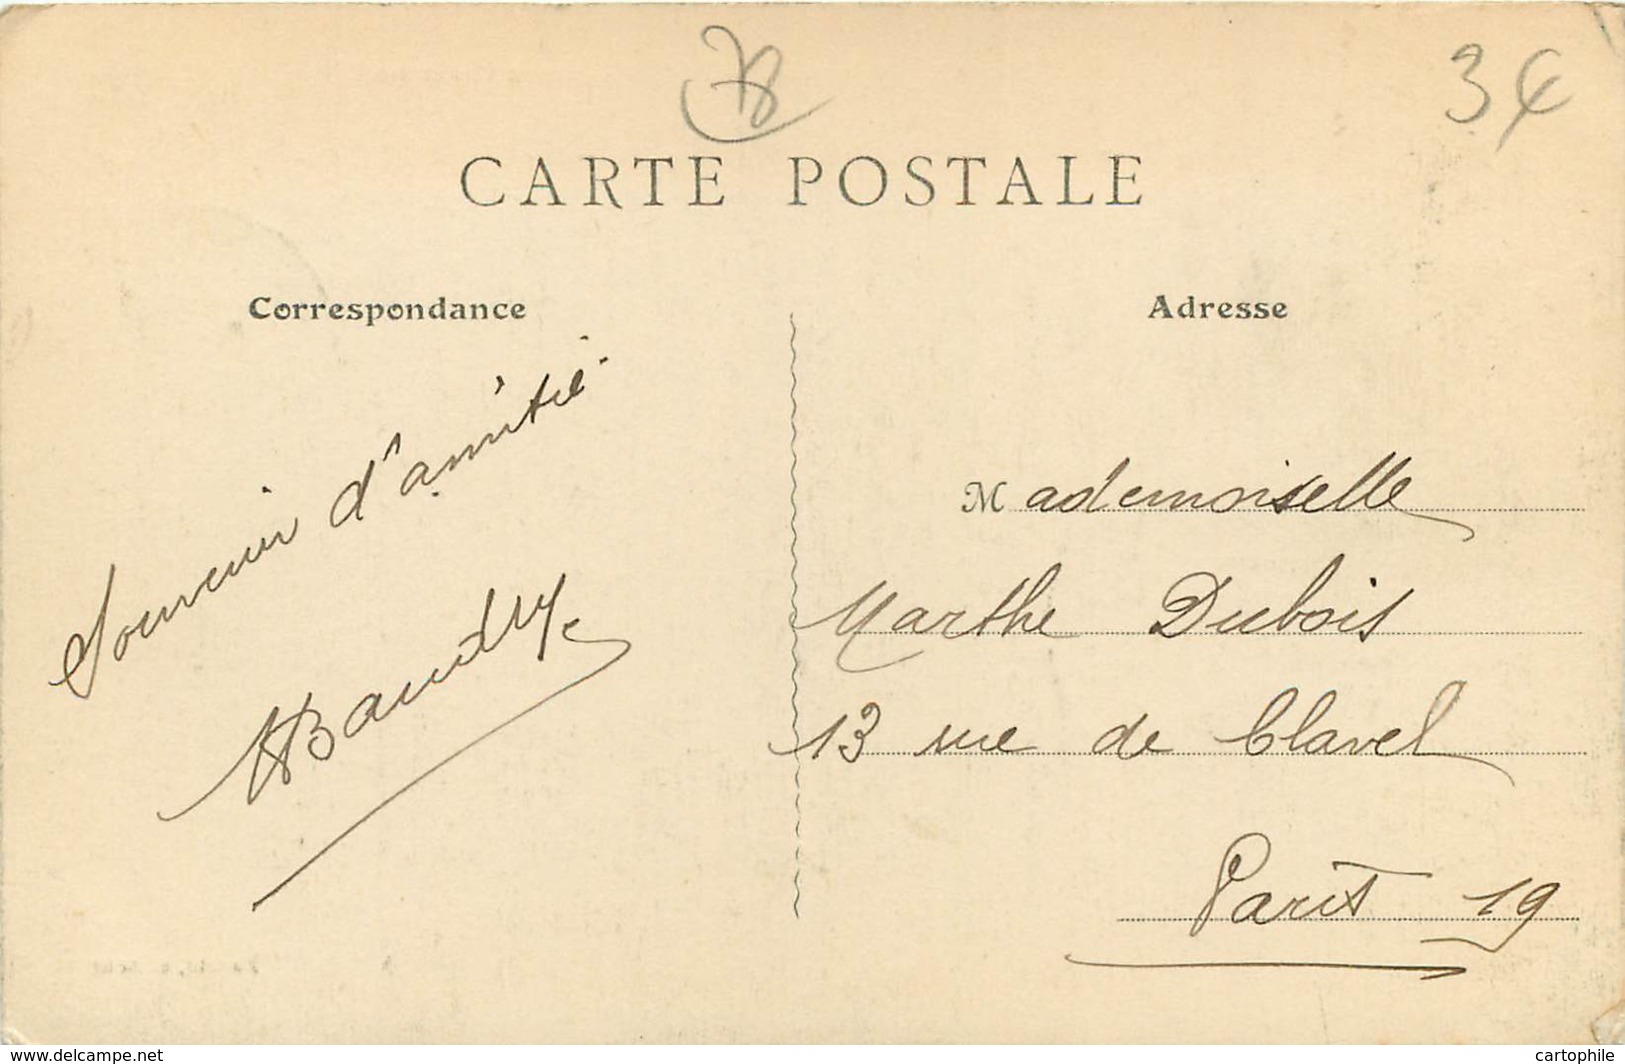 3€
CARTE POSTALE
Correspondance
Adresse
Souvenir d'amitié
Baudry
Mademoiselle
Marthe Dubois
13 rue de Clavel
Paris 19
www.delcampe.net
cartophile